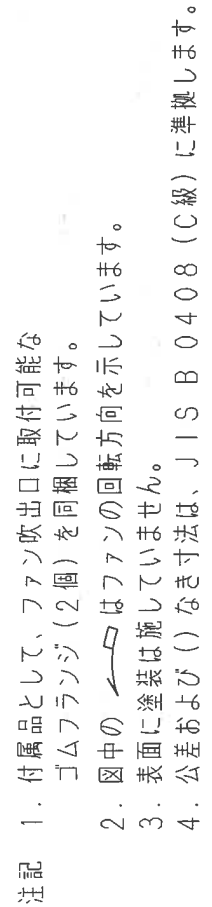 注記 1. 付属品として、ファン吹出口に取付可能な
ゴムフランジ（2個）を同梱しています。
2. 図中の はファンの回転方向を示しています。
3. 表面に塗装は施していません。
4. 公差および（）なき寸法は、JIS B 0408（C級）に準拠します。